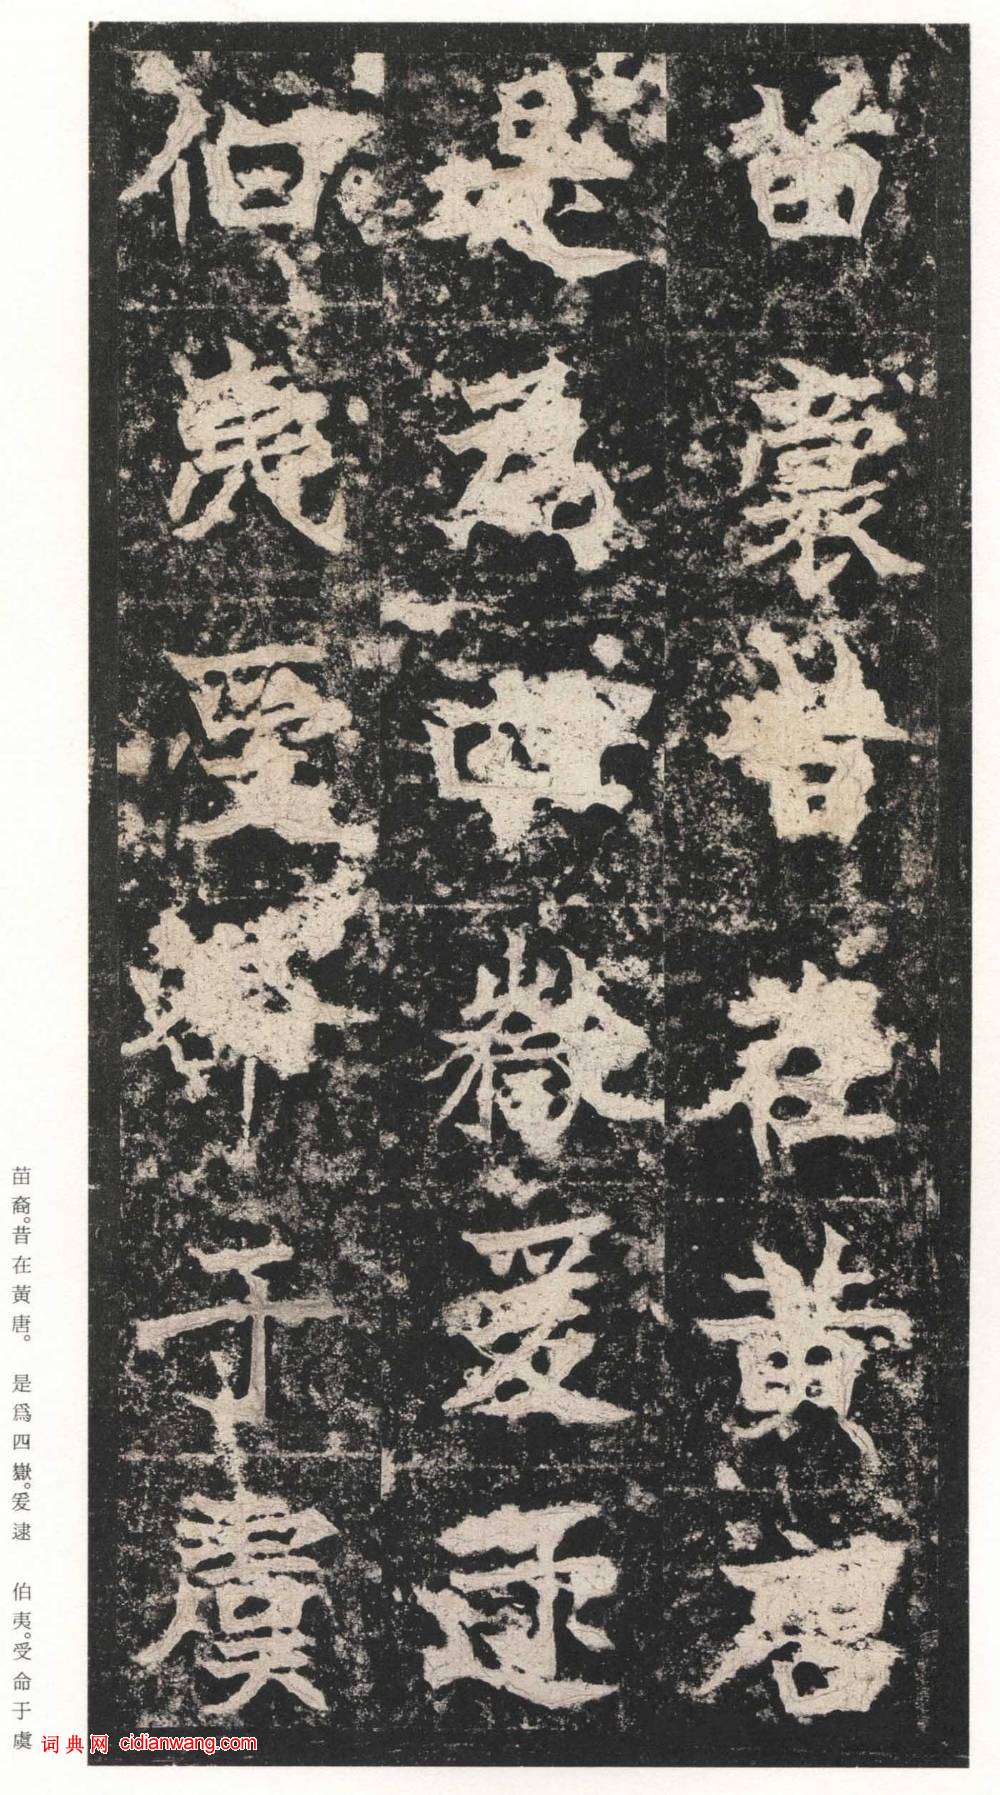 苗裔昔在黃唐
是為四嶽爰逮
伯夷受命于虞
苗裔。昔在黃唐。 是爲四嶽。爰逮 伯夷。受命于虞
词典网 cidianwang.com